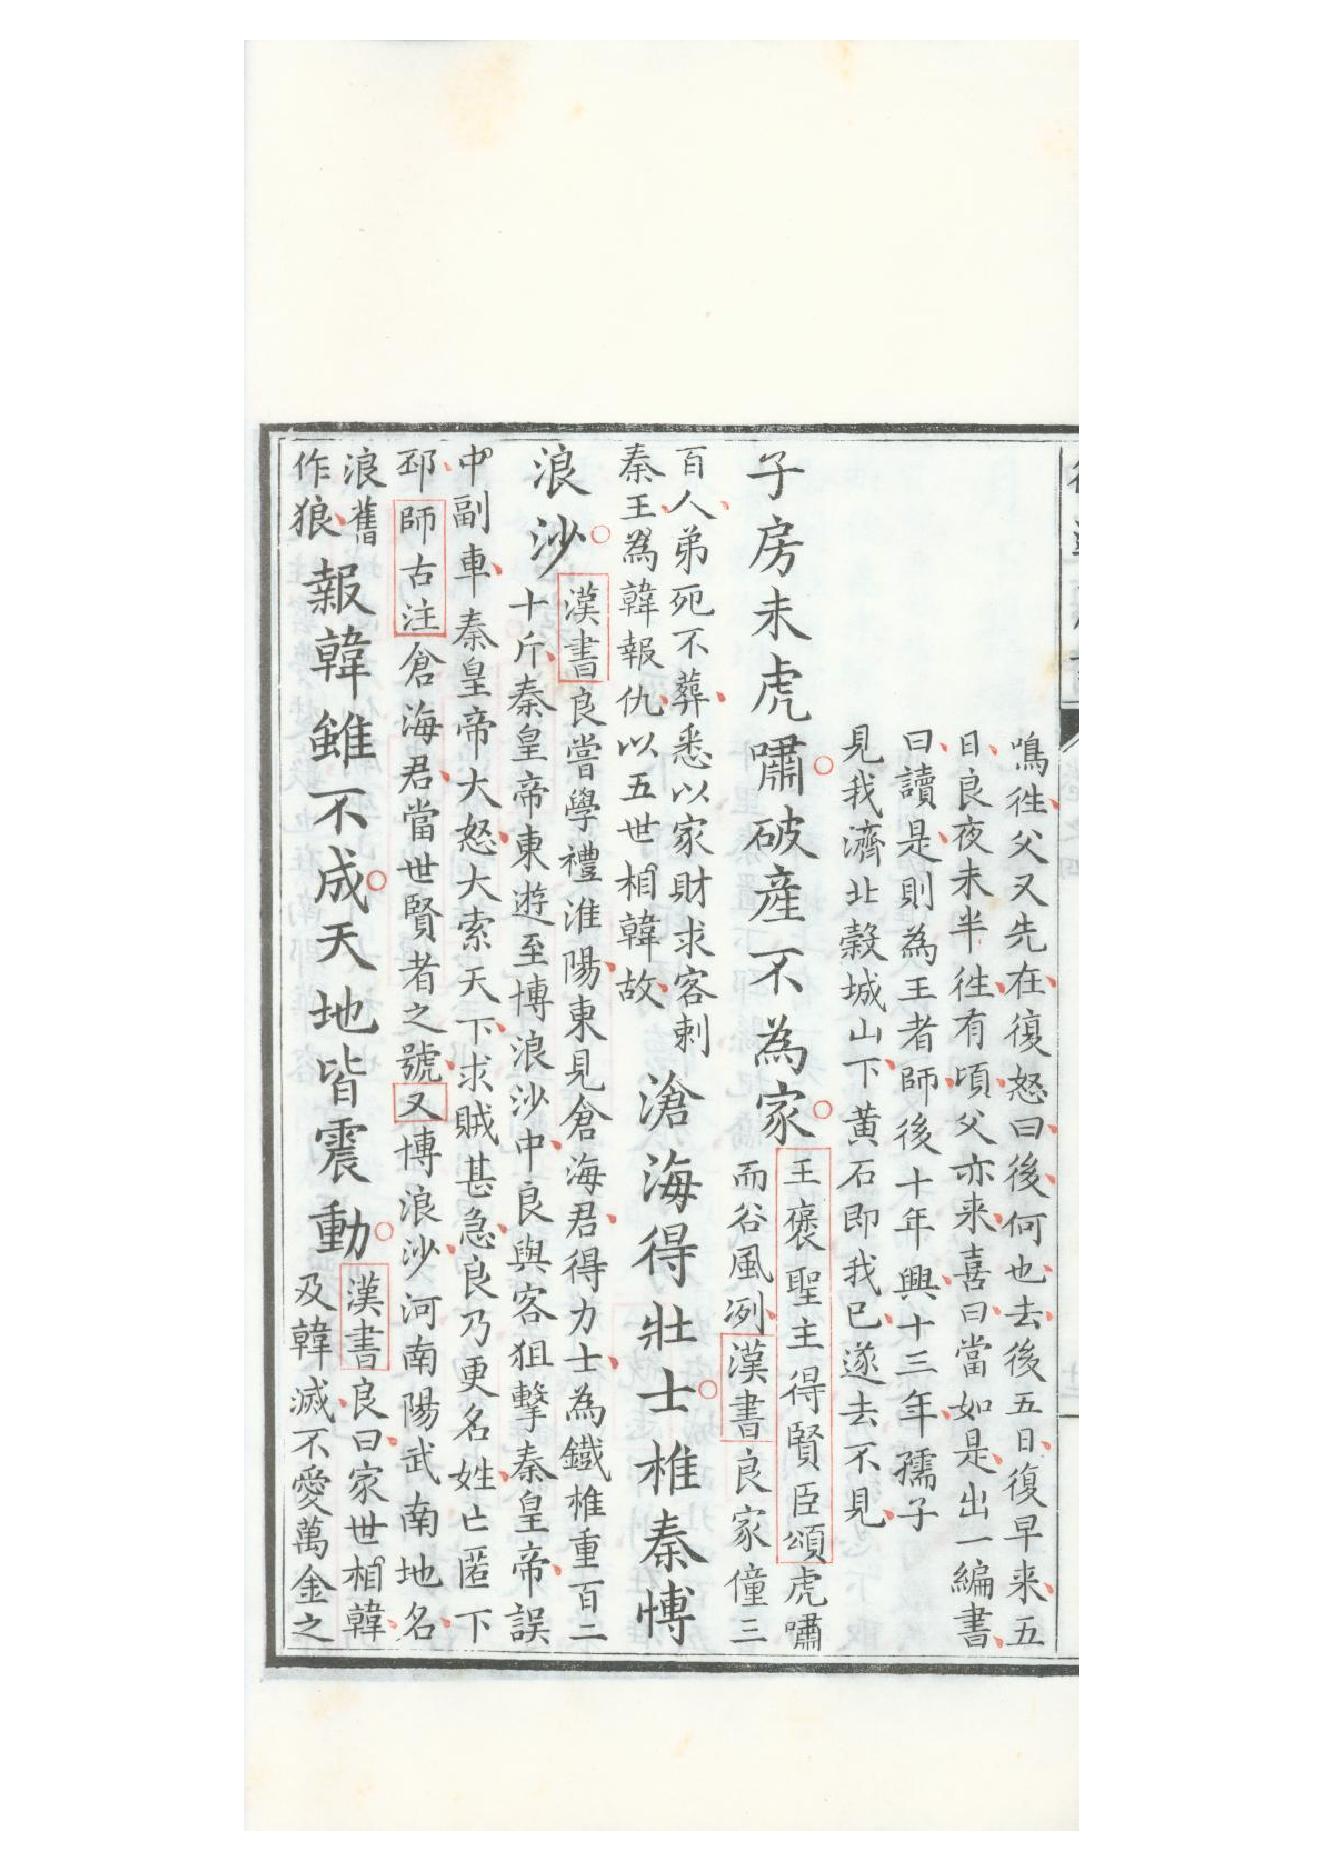 鳴徃父又先在復怒曰後何也去後五日復早来五
日良夜未半徃有頃父亦来喜曰當如是出一編書
曰讀是則為王者師後十年興十三年孺子
見我濟北榖城山下黄石即我已遂去不見
子房未虎嘯破産不為家
王褒聖主得賢臣頌虎嘯
而谷風冽漢書良家僮三
百人弟死不葬悉以家財求客刺
秦王為韓報仇以五世相韓故
滄海得壯士椎秦博
浪沙
漢書良嘗學禮淮陽東見倉海君得力士為鐵椎重百二
十斤秦皇帝東遊至博浪沙中良與客狙擊秦皇帝誤
中副車秦皇帝大怒大索天下求賊甚急良乃更名姓亡匿下
邳師古注倉海君當世賢者之號又博浪沙河南陽武南地名
浪舊
作狼
報韓雖不成天地皆震動
漢書良曰家世相韓
及韓滅不愛萬金之